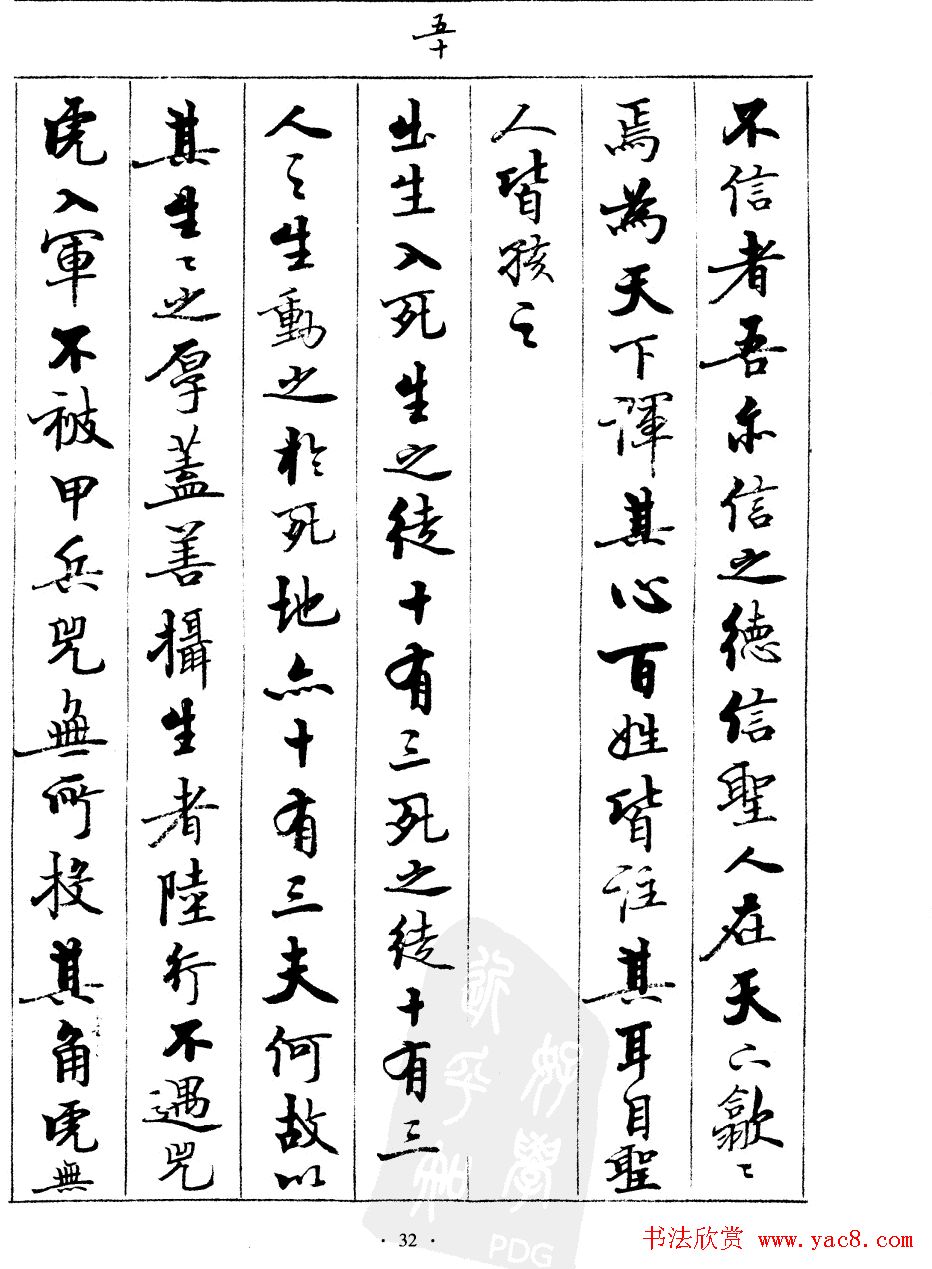 五十
不信者吾亦信之德信聖人在天下歙〻
焉為天下渾其心百姓皆注其耳目聖
人皆孩之
出生入死生之徒十有三死之徒十有三
人之生動之於死地亦十有三夫何故以
其生〻之厚蓋善攝生者陸行不遇兕
虎入軍不被甲兵兕無所投其角虎無
· 32 ·
PDG
书法欣赏 www.yac8.com